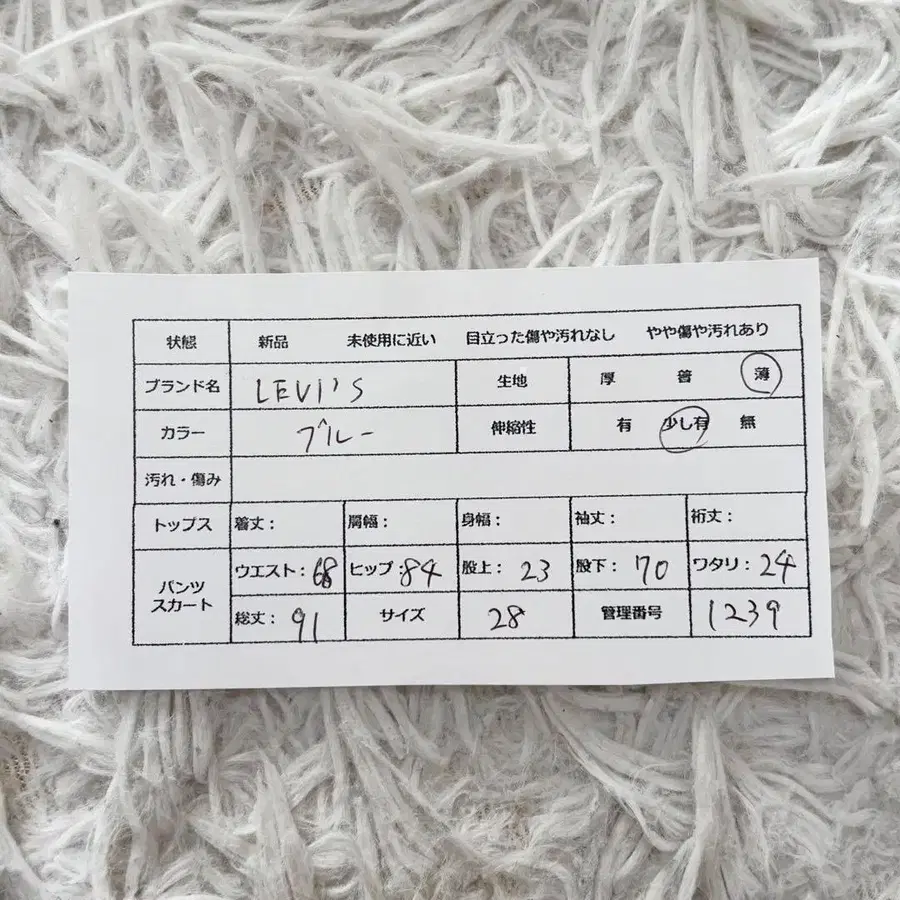 状態 新品 未使用に近い 目立った傷や汚れなし やや傷や汚れあり
ブランド名 LEVI'S 生地 厚 普 薄
カラー ブルー 伸縮性 有 少し有 無
汚れ・傷み
トップス 着丈: 肩幅: 身幅: 袖丈: 裄丈:
パンツ スカート ウエスト:68 ヒップ:84 股上: 23 股下: 70 ワタリ: 24
総丈: 91 サイズ 28 管理番号 1239